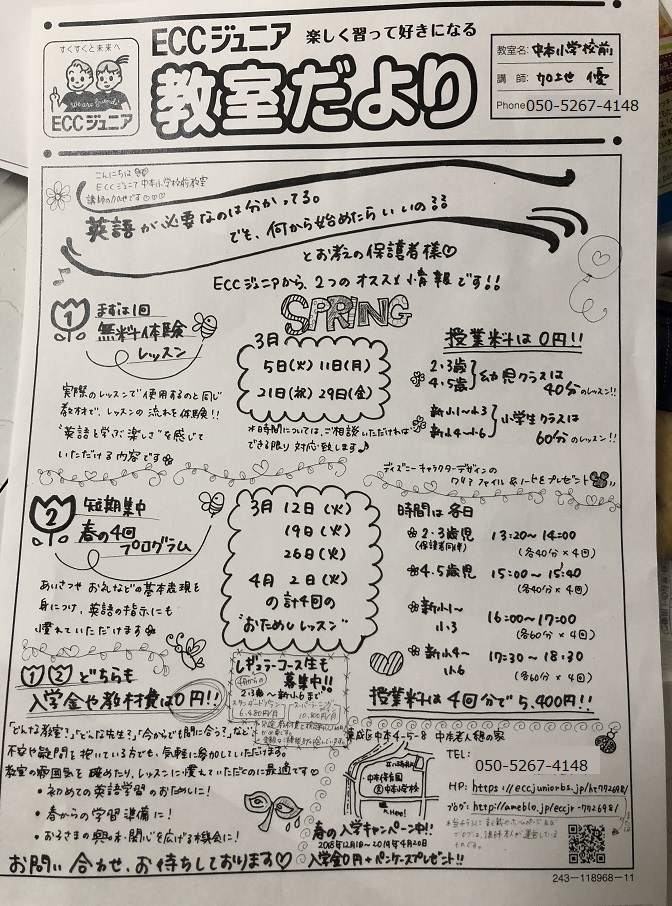 すくすくと未来へ
We are friends!
ECCジュニア
ECCジュニア 楽しく習って好きになる
教室だより
教室名: 中本小学校前
講師: 加世 優
Phone 050-5267-4148
こんにちは
ECCジュニア中本小学校前教室
講師のかせです♡♡♡
英語が必要なのは分かってる。
でも、何から始めたらいいの??
とお考えの保護者様♡
ECCジュニアから、2つのオススメ情報です!!
SPRING
1 まずは1回
無料体験
レッスン
実際のレッスンで使用するのと同じ
教材で、レッスンの流れを体験!!
"英語を学ぶ楽しさ"を感じて
いただける内容です
3月
5日(火) 11日(月)
21日(祝) 29日(金)
*時間については、ご相談いただければ
できる限り対応致します♪
授業料は0円!!
2・3歳
4・5歳
幼児クラスは
40分のレッスン!!
新小1~小3
新小4~小6
小学生クラスは
60分のレッスン!!
ディズニーキャラクターデザインの
クリアファイル&ノートをプレゼント
2 短期集中
春の4回
プログラム
あいさつやお礼などの基本表現を
身につけ、英語の指示にも
慣れていただけます
3月 12日(火)
19日(火)
26日(火)
4月 2日(火)
の計4回の
"おためしレッスン"
時間は各日
2・3歳児 13:20~14:00
(保護者同伴) (各40分×4回)
4・5歳児 15:00~15:40
(各40分×4回)
新小1~小3 16:00~17:00
(各60分×4回)
新小4~小6 17:30~18:30
(各60分×4回)
授業料は4回分で5,400円!!
1 2 どちらも
入学金や教材費は0円!!
レギュラーコース生も
募集中!!
4月からの
2・3歳~新小6まで
スタンダードプラン
6,480円/月
スーパーラーニング
10,800円/月
「どんな教室?」「どんな先生?」「今からでも間に合う?」など
不安や疑問を抱いている方でも、気軽に参加していただけます。
教室の雰囲気を確めたり、レッスンに慣れていただくのに最適です♡
・初めての英語学習のおためしに!
・春からの学習準備に!
・お子さまの興味・関心を広げる機会に!
お問い合わせ、お待ちしております♡
東成区中本4-5-8 中本老人憩の家
中本保育園
中本小学校
Here!
春の入学キャンペーン中!!
2018年12月1日~2019年4月20日
入学金0円+ペンケースプレゼント!!
TEL:
050-5267-4148
HP: https://eccjuniorbs.jp/kt772698/
ブログ: http://ameblo.jp/eccjr-7726981/
243-118968-11